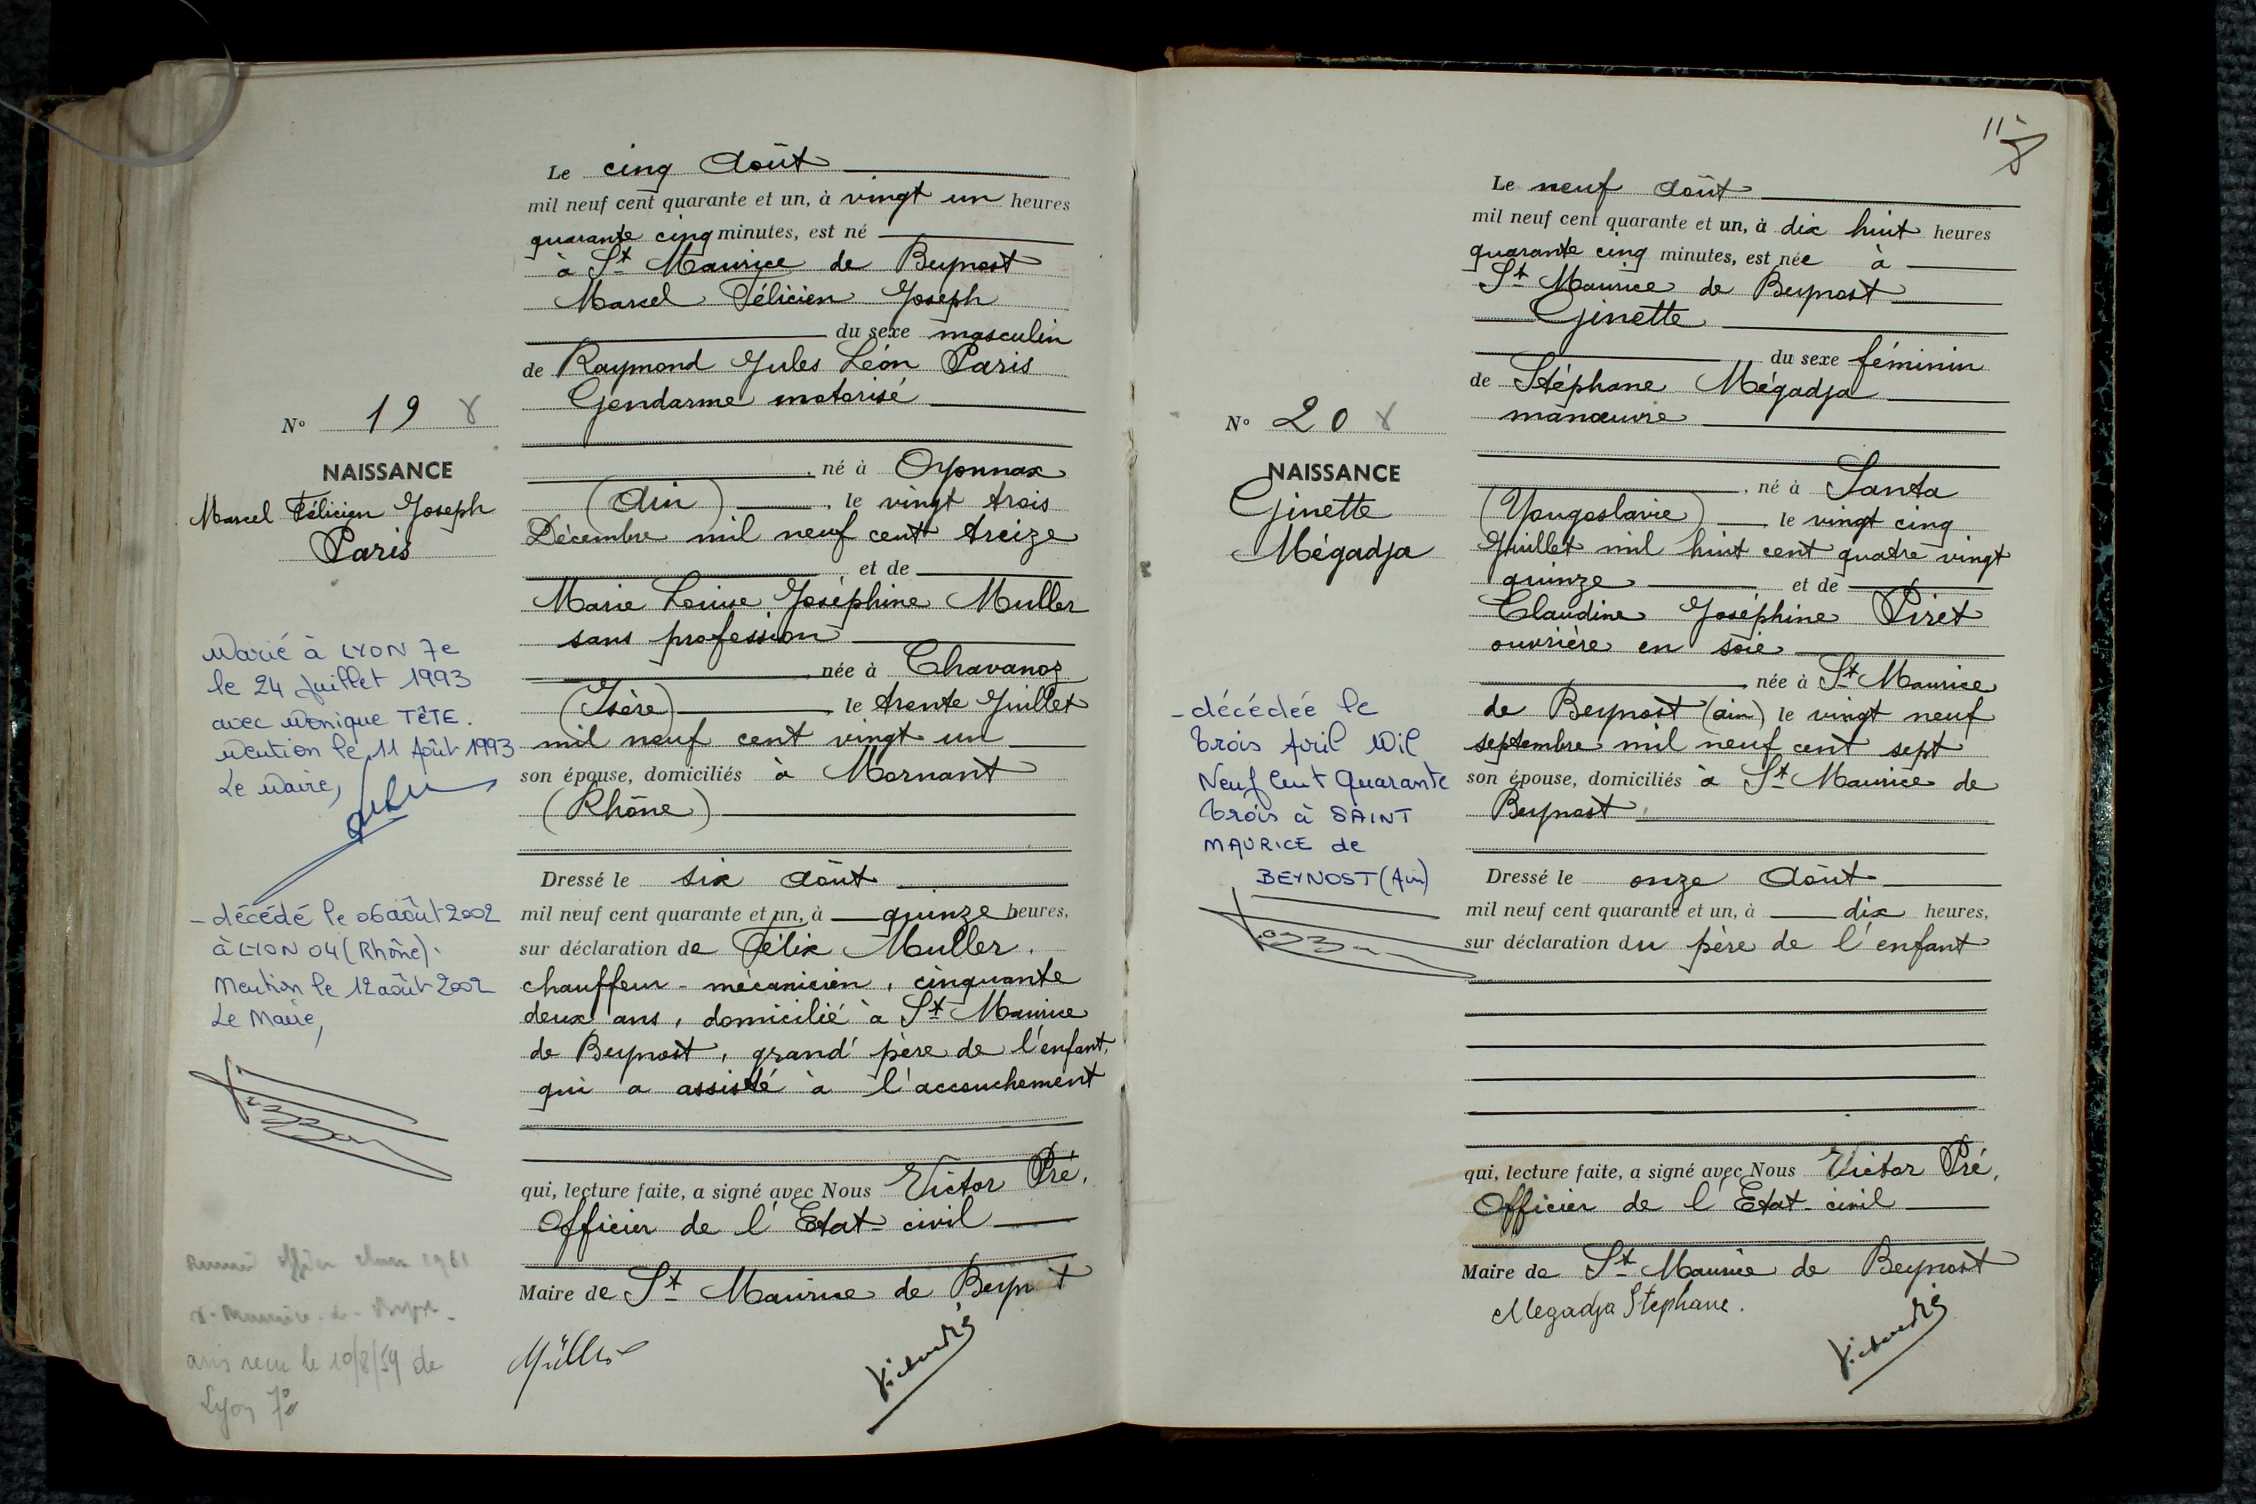 Le cinq Août
mil neuf cent quarante et un, à vingt un heures
quarante cinq minutes, est né
à St Maurice de Beynost
Marcel Félicien Joseph
du sexe masculin
de Raymond Jules Léon Paris
Gendarme motorisé
né à Oyonnax
(Ain), le vingt trois
Décembre mil neuf cent treize
et de
Marie Louise Joséphine Muller
sans profession
née à Chavanoz
(Isère) le trente Juillet
mil neuf cent vingt un
son épouse, domiciliés à Mornant
(Rhône)
Dressé le six Août
mil neuf cent quarante et un, à quinze heures,
sur déclaration de Félix Muller.
chauffeur-mécanicien, cinquante
deux ans, domicilié à St Maurice
de Beynost, grand' père de l'enfant,
qui a assisté à l'accouchement
qui, lecture faite, a signé avec Nous Victor Pré,
Officier de l'Etat-civil
Maire de St Maurice de Beynost
Müller
Victor Pré
No 19
NAISSANCE
Marcel Félicien Joseph
Paris
Marié à LYON 7e
le 24 Juillet 1993
avec Monique TÊTE.
Mention le 11 Août 1993
Le Maire,
- décédé le 06 août 2002
à LYON 04 (Rhône).
Mention le 12 août 2002
Le Maire,
avis reçu le 10/8/59 de
Lyon 7e
118
Le neuf Août
mil neuf cent quarante et un, à dix huit heures
quarante cinq minutes, est née à
St Maurice de Beynost
Ginette
du sexe féminin
de Stéphane Mégadja
manœuvre
né à Santa
(Yougoslavie) le vingt cinq
Juillet mil huit cent quatre vingt
quinze et de
Claudine Joséphine Piret
ouvrière en soie
née à St Maurice
de Beynost (ain) le vingt neuf
septembre mil neuf cent sept
son épouse, domiciliés à St Maurice de
Beynost,
Dressé le onze Août
mil neuf cent quarante et un, à dix heures,
sur déclaration du père de l'enfant
qui, lecture faite, a signé avec Nous Victor Pré,
Officier de l'Etat-civil
Maire de St Maurice de Beynost
Megadja Stéphane.
Victor Pré
No 20
NAISSANCE
Ginette
Mégadja
- décédée le
trois Avril Mil
Neuf Cent Quarante
trois à SAINT
MAURICE de
BEYNOST (Ain)